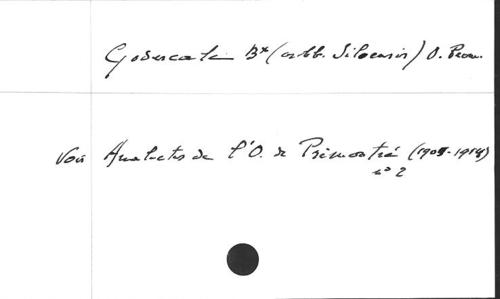 Godescalc Bx (abb. Siloensis) O. Prem.
Voir Analectes de l'O. de Prémontré (1905-1914)
no 2